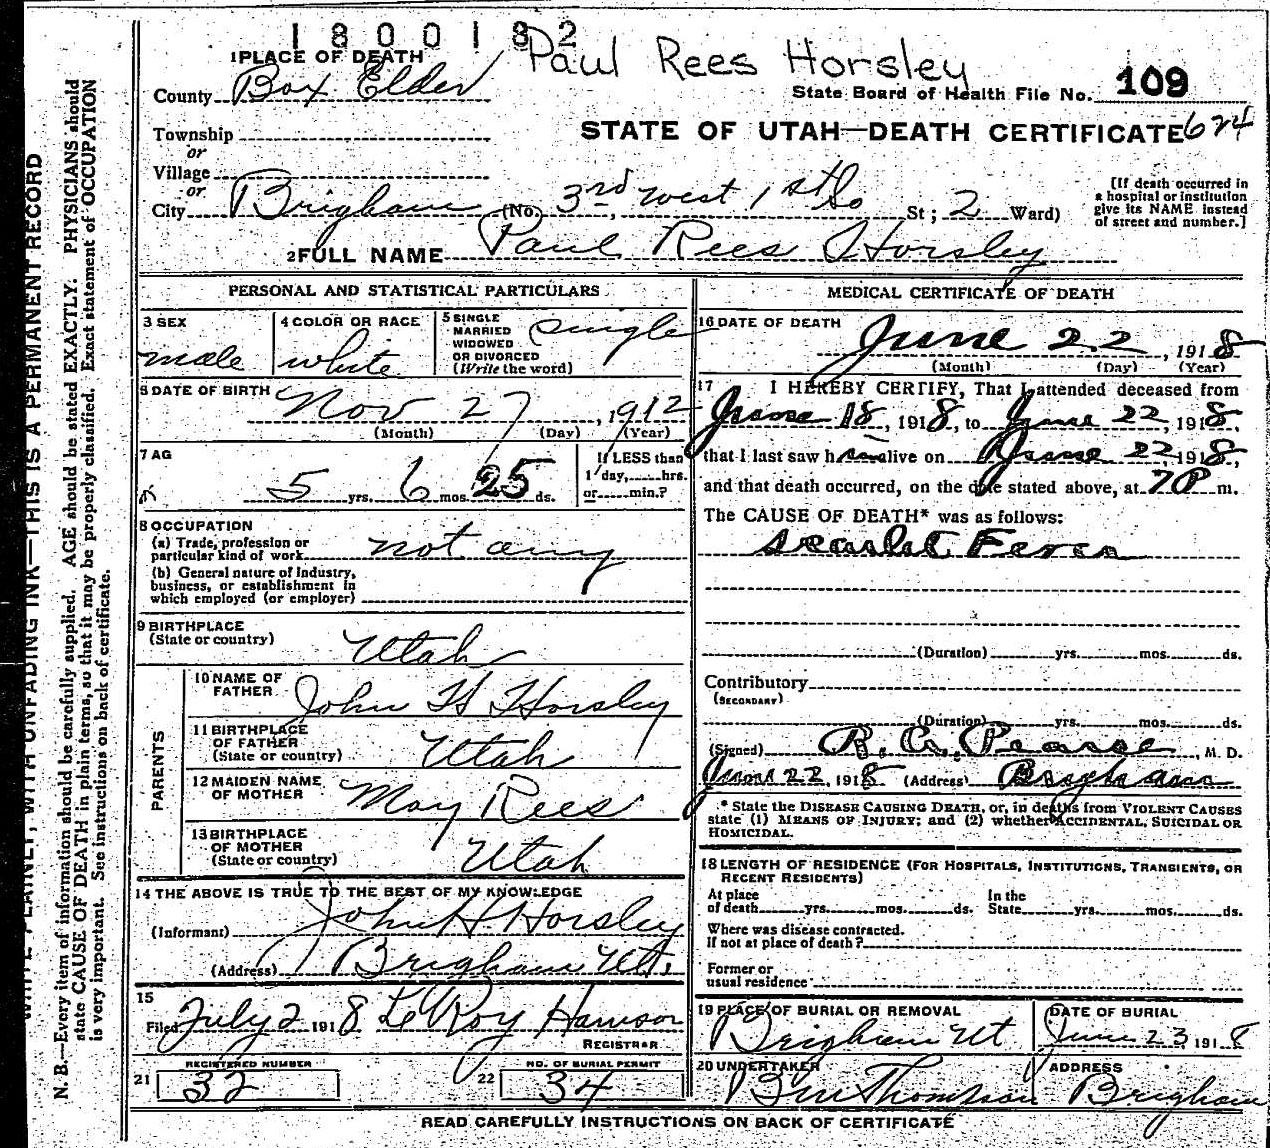 1800182
Paul Rees Horsley
1 PLACE OF DEATH
County Box Elder
State Board of Health File No. 109
Township
or
STATE OF UTAH—DEATH CERTIFICATE 624
Village
or
City Brigham (No. 3rd west 1st So St; 2 Ward)
[If death occurred in
a hospital or institution
give its NAME instead
of street and number.]
2 FULL NAME Paul Rees Horsley
PERSONAL AND STATISTICAL PARTICULARS
3 SEX
male
4 COLOR OR RACE
white
5 SINGLE
MARRIED
WIDOWED
OR DIVORCED
(Write the word)
single
6 DATE OF BIRTH
Nov 27, 1912
(Month) (Day) (Year)
7 AG
5 yrs. 6 mos. 25 ds.
If LESS than
1 day, hrs.
or min.?
8 OCCUPATION
(a) Trade, profession or
particular kind of work not any
(b) General nature of Industry,
business, or establishment in
which employed (or employer)
9 BIRTHPLACE
(State or country) Utah
PARENTS
10 NAME OF
FATHER John H Horsley
11 BIRTHPLACE
OF FATHER
(State or country) Utah
12 MAIDEN NAME
OF MOTHER May Rees
13 BIRTHPLACE
OF MOTHER
(State or country) Utah
14 THE ABOVE IS TRUE TO THE BEST OF MY KNOWLEDGE
(Informant) John H. Horsley
(Address) Brigham Ut.
15
Filed July 2 1918 LeRoy Harrison
REGISTRAR
REGISTERED NUMBER
21 32
NO. OF BURIAL PERMIT
22 34
MEDICAL CERTIFICATE OF DEATH
16 DATE OF DEATH
June 22, 1918
(Month) (Day) (Year)
17 I HEREBY CERTIFY, That I attended deceased from
June 18, 1918, to June 22, 1918,
that I last saw him alive on June 22, 1918,
and that death occurred, on the date stated above, at 7 P m.
The CAUSE OF DEATH* was as follows:
Scarlet Fever
(Duration) yrs. mos. ds.
Contributory
(SECONDARY)
(Duration) yrs. mos. ds.
(Signed) R. A. Pearse, M. D.
June 22, 1918 (Address) Brigham
* State the DISEASE CAUSING DEATH, or, in deaths from VIOLENT CAUSES
state (1) MEANS OF INJURY; and (2) whether ACCIDENTAL, SUICIDAL OR
HOMICIDAL.
18 LENGTH OF RESIDENCE (FOR HOSPITALS, INSTITUTIONS, TRANSIENTS, OR
RECENT RESIDENTS)
At place
of death yrs. mos. ds.
In the
State yrs. mos. ds.
Where was disease contracted.
If not at place of death?
Former or
usual residence
19 PLACE OF BURIAL OR REMOVAL
Brigham Ut
DATE OF BURIAL
June 23, 1918
20 UNDERTAKER
Thompson
ADDRESS
Brigham
READ CAREFULLY INSTRUCTIONS ON BACK OF CERTIFICATE
WRITE PLAINLY, WITH UNFADING INK—THIS IS A PERMANENT RECORD
N. B.—Every item of information should be carefully supplied. AGE should be stated EXACTLY. PHYSICIANS should
state CAUSE OF DEATH in plain terms, so that it may be properly classified. Exact statement of OCCUPATION
is very important. See instructions on back of certificate.